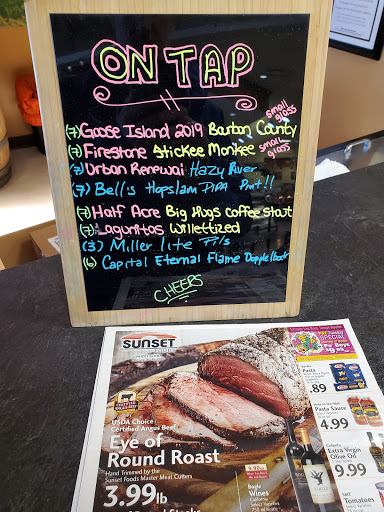 ON TAP
(7) Goose Island 2019 Bourbon County small glass
(7) Firestone Stickee Monkee small glass
(7) Urban Renewal Hazy River
(7) Bell's Hopslam DIPA Pint!!
(7) Half Acre Big Hugs coffee stout
(7) Lagunitas Willettized
(3) Miller lite
(6) Capital Eternal Flame Dopplebock
CHEERS
SUNSET
USDA Choice
Certified Angus Beef
Eye of
Round Roast
Hand Trimmed by the
Sunset Foods Master Meat Cutters
3.99 lb
Bogle
Wines
SPECIAL
Po' Boys
$9.99
Pasta
.89
Pasta Sauce
4.99
Extra Virgin
Olive Oil
9.99
Tomatoes